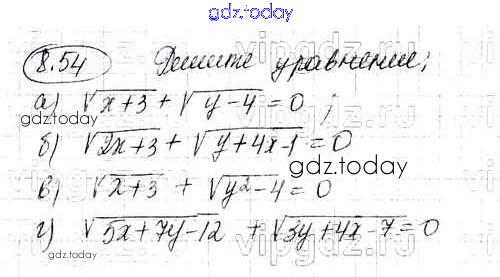 gdz.today
8.54 Решите уравнение;
а) √x+3 + √y-4 = 0 ;
б) √2x+3 + √y+4x-1 = 0
gdz.today
в) √x+3 + √y²-4 = 0
г) √5x+7y-12 + √3y+4x-7 = 0
gdz.today
gdz.today